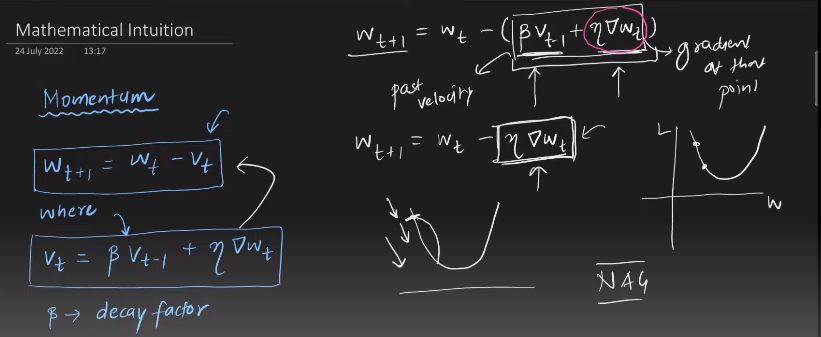 Mathematical Intuition
24 July 2022 13:17
Momentum
w_{t+1} = w_t - v_t
where
v_t = β v_{t-1} + η ∇w_t
β → decay factor
w_{t+1} = w_t - (β v_{t-1} + η ∇w_t)
past velocity
gradient
at that
point
w_{t+1} = w_t - η ∇w_t
L
w
NAG